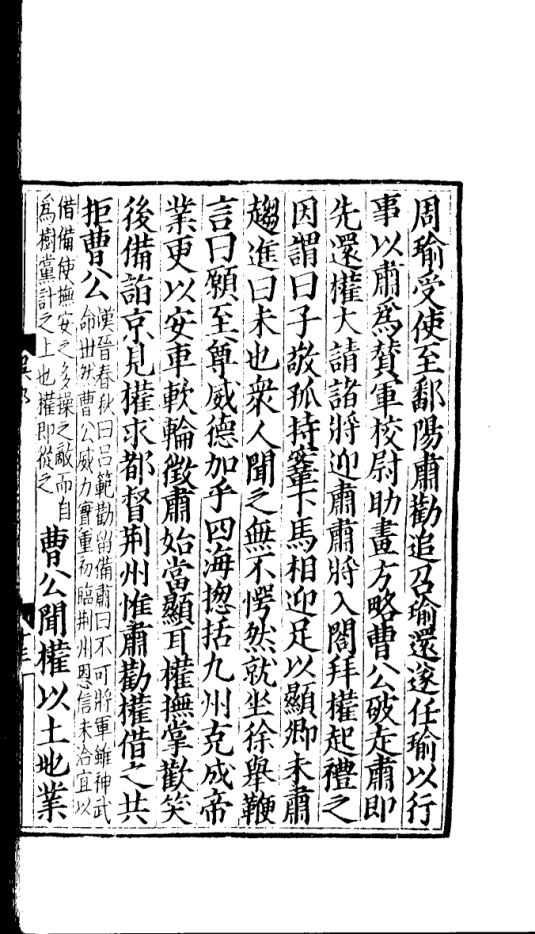 周瑜受使至鄱陽肅勸追召瑜還遂任瑜以行
事以肅爲賛軍校尉助畫方略曹公破走肅即
先還權大請諸將迎肅肅將入閤拜權起禮之
因謂曰子敬孤持鞌下馬相迎足以顯卿未肅
趨進曰未也衆人聞之無不愕然就坐徐舉鞭
言曰願至尊威德加乎四海揔括九州克成帝
業更以安車軟輪徵肅始當顯耳權撫掌歡笑
後備詣京見權求都督荆州惟肅勸權借之共
拒曹公
漢晉春秋曰吕範勸留備肅曰不可將軍雖神武
命世然曹公威力實重初臨荆州恩信未洽宜以
借備使撫安之多操之敵而自
爲樹黨計之上也權即從之
曹公聞權以土地業